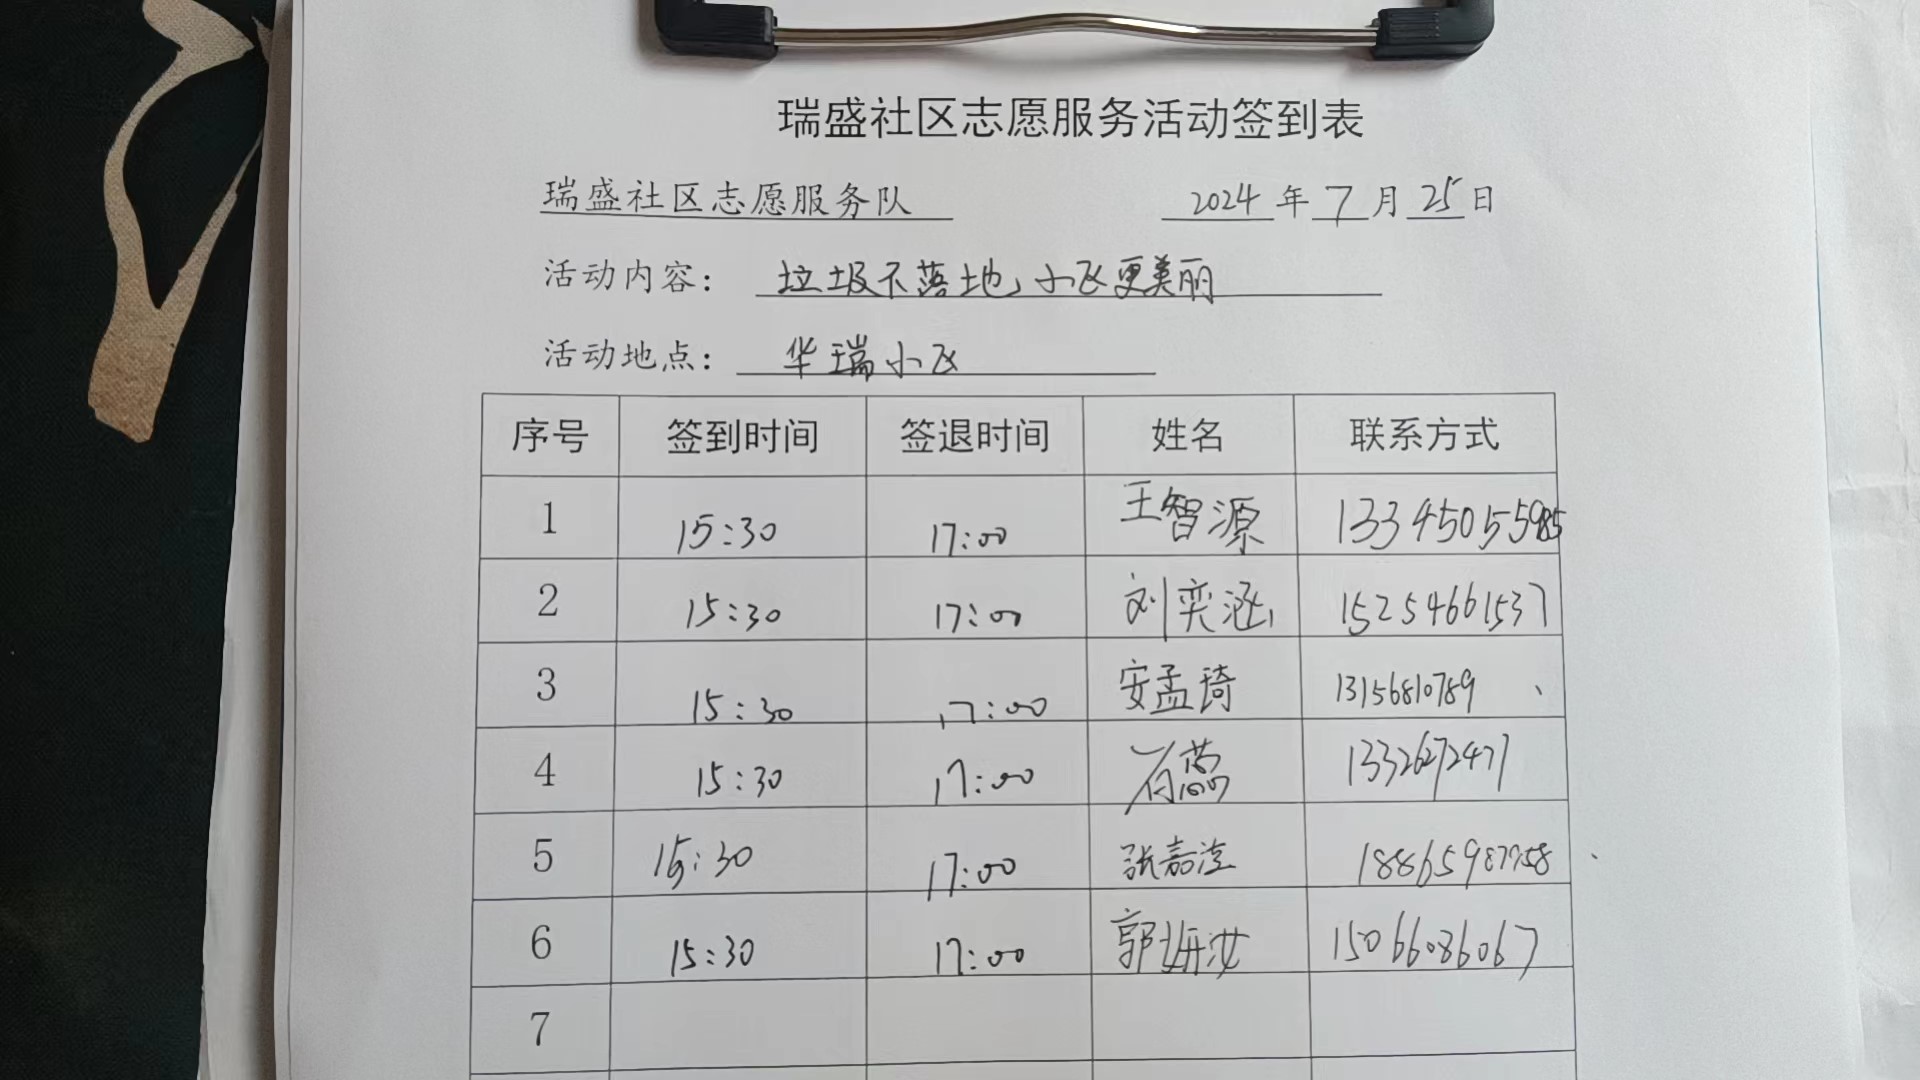 瑞盛社区志愿服务活动签到表
瑞盛社区志愿服务队 2024年7月25日
活动内容： 垃圾不落地，小区更美丽
活动地点： 华瑞小区
序号 签到时间 签退时间 姓名 联系方式
1 15:30 17:00 王智源 13345055985
2 15:30 17:00 刘奕涵 15254661537
3 15:30 17:00 安孟琦 13156810789
4 15:30 17:00 13326272477
5 15:30 17:00 张嘉滢 18865987758
6 15:30 17:00 郭妍汝 15066086067
7